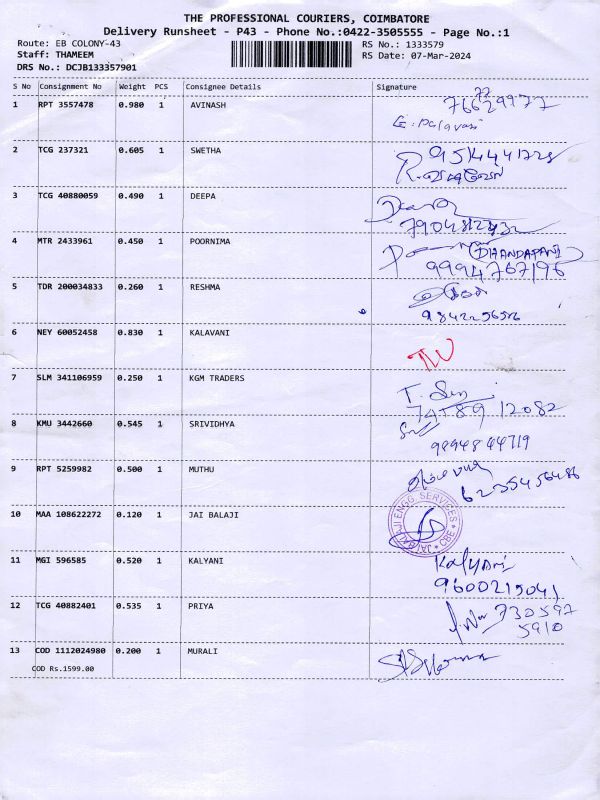 THE PROFESSIONAL COURIERS, COIMBATORE
Delivery Runsheet - P43 - Phone No.:0422-3505555 - Page No.:1
Route: EB COLONY-43
RS No.: 1333579
Staff: THAMEEM
RS Date: 07-Mar-2024
DRS No.: DCJB133357901
S No Consignment No Weight PCS Consignee Details Signature
1 RPT 3557478 0.980 1 AVINASH
2 TCG 237321 0.605 1 SWETHA
3 TCG 40880059 0.490 1 DEEPA
4 MTR 2433961 0.450 1 POORNIMA DHANDAPANI
9994767196
5 TDR 200034833 0.260 1 RESHMA
6 NEY 60052458 0.830 1 KALAVANI
7 SLM 341106959 0.250 1 KGM TRADERS
8 KMU 3442660 0.545 1 SRIVIDHYA
9894844719
9 RPT 5259982 0.500 1 MUTHU
10 MAA 108622272 0.120 1 JAI BALAJI JAI BALAJI ENGG. SERVICES CBE
11 MGI 596585 0.520 1 KALYANI Kalyani
9600215041
12 TCG 40882401 0.535 1 PRIYA 730597
5910
13 COD 1112024980 0.200 1 MURALI
COD Rs.1599.00